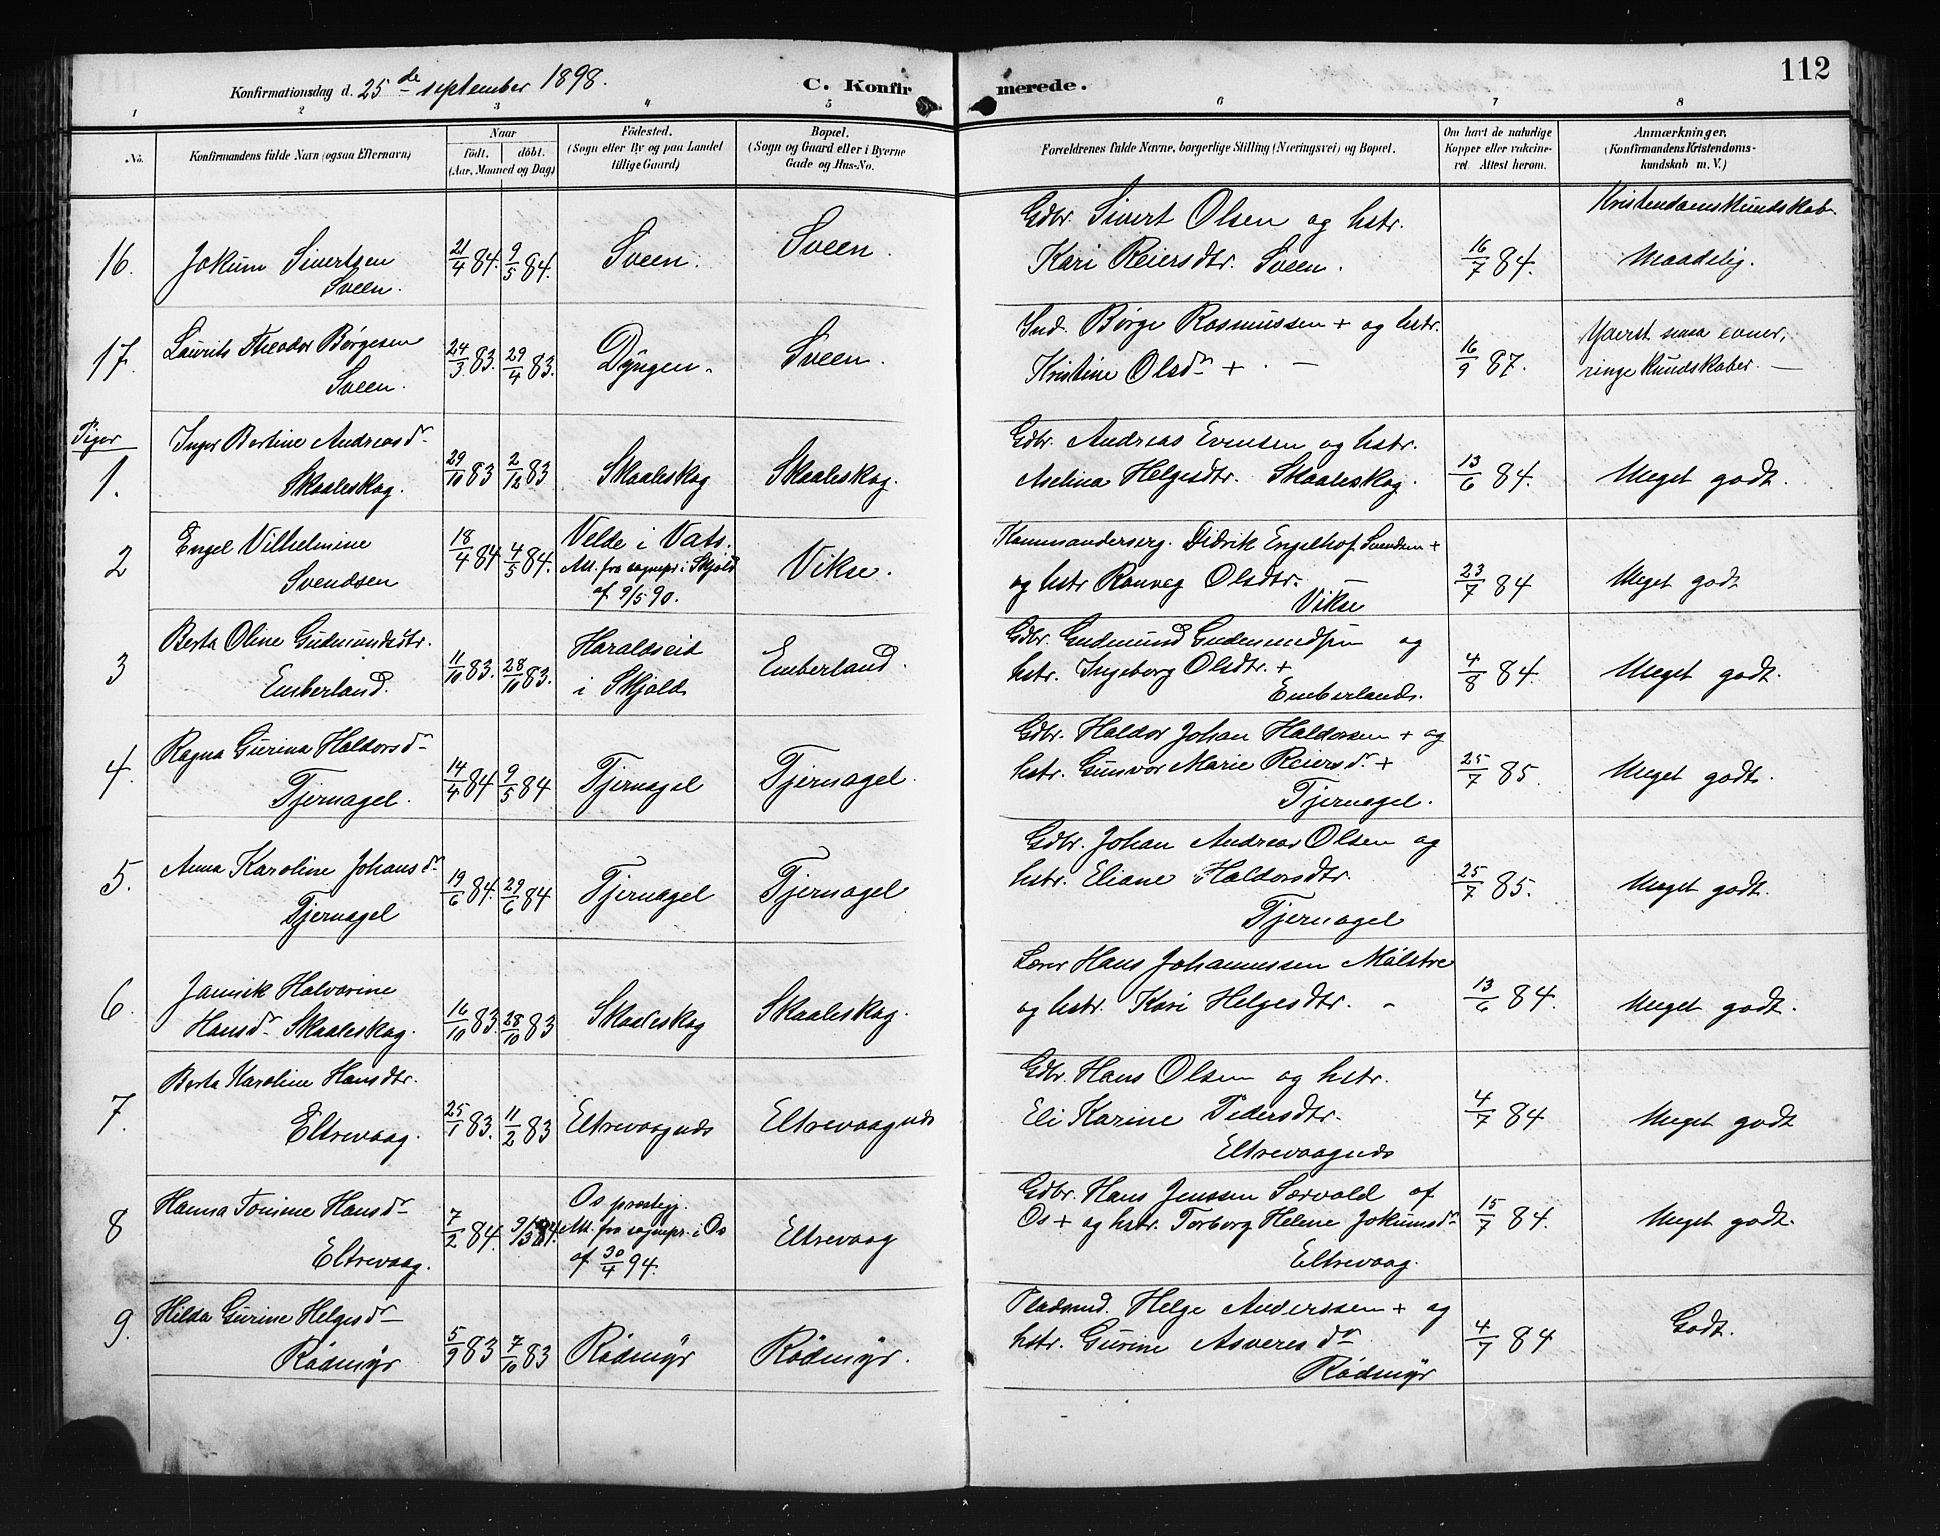 112
Konfirmationsdag d. 25de september 1898. C. Konfirmerede.
1 2 3 4 5 6 7 8
No. Konfirmandens fulde Navn (ogsaa Efternavn)
Naar
født. døbt.
(Aar, Maaned og Dag)
Fødested.
(Sogn eller By og paa Landet
tillige Gaard)
Bopæl.
(Sogn og Gaard eller i Byerne
Gade og Hus-No.
Forældrenes fulde Navne, borgerlige Stilling (Næringsvei) og Bopæl.
Om havt de naturlige
Kopper eller vakcine-
ret. Attest herom.
Anmærkninger,
(Konfirmandens Kristendoms-
kundskab m. V.)
Kristendomskundskab
16. Jokum Sivertsen 21/4 84. 9/5 84. Sveen. Sveen. Gdbr. Sivert Olsen og hstr. 16/7 84. Maadelig.
Sveen. Kari Reiersdtr. Sveen.
17. Laurits Theodor Børgesen 24/3 83. 29/4 83. Dyngen. Sveen. Ind. Børge Rasmussen + og hstr. 16/9 87. Yderst smaa evner,
Sveen. Kristine Olsdr + . — ringe kundskaber. —
Piger
1. Inger Bertine Andreasdr 29/10 83 2/12 83 Skaaleskog Skaaleskog. Gdbr. Andreas Evensen og hstr. 13/6 84. Meget godt.
Skaaleskog. Aselina Helgesdtr. Skaaleskog.
2 Engel Vilhelmine 18/4 84 4/5 84. Velde i Vats. Vikse. Kommanderserg. Didrik Engelhof Svendsen + 23/7 84 Meget godt
Svendsen Att. fra sognepr. i Skjold og hstr Ranveg Olsdtr. —
af 9/5 90. Vikse
3 Berta Oline Gudmundsdtr. 11/10 83. 28/10 83. Haraldseid Emberland. Gdbr. Gudmund Gudmundsen og 4/8 84. Meget godt.
Emberland. i Skjold hstr. Ingeborg Olsdtr. +
Emberlands.
4. Ragna Gurina Haldorsdr 14/4 84 9/5 84 Tjernagel Tjernagel. Gdbr. Haldor Johan Haldorsen + og 25/7 85. Meget godt.
Tjernagel. hstr. Gunvor Marie Reiersdr. +
Tjernagel.
5. Anna Karoline Johansdr 19/6 84. 29/6 84 Tjernagel Tjernagel Gdbr. Johan Andreas Olsen og 25/7 85. Meget godt.
Tjernagel hstr. Eliane Haldorsdtr.
Tjernagel
6. Jannik Halvarine 16/10 83. 28/10 83 Skaaleskog Skaaleskog. Lærer Hans Johannessen Mølstre 13/6 84. Meget godt.
Hansdr Skaaleskog. og hstr. Kari Helgesdtr. -
7. Berta Karoline Hansdtr. 25/1 83. 11/2 83 Eltrevaagnds Eltrevaagnds Gdbr. Hans Olsen og hstr. 4/7 84 Meget godt
Eltrevaag. Eli Karine Pedersdtr.
Eltrevaagnds
8 Hanna Tomine Hansdr 7/2 84. 9/3 84. Os prestegj. Eltrevaag Gdbr. Hans Jenssen Særvold af 15/7 84. Meget godt.
Eltrevaag. Att. fra sognepr. i Os Os + og hstr. Torborg Helene Jokumsdr
af 30/4 94. Eltrevaag.
9. Hilda Gurine Helgesdr 5/9 83 7/10 83 Rødmyr Rødmyr. Pladsmd. Helge Anderssen + og 4/7 84 Godt.
Rødmyr hstr. Gurine Asveresdr
Rødmyr